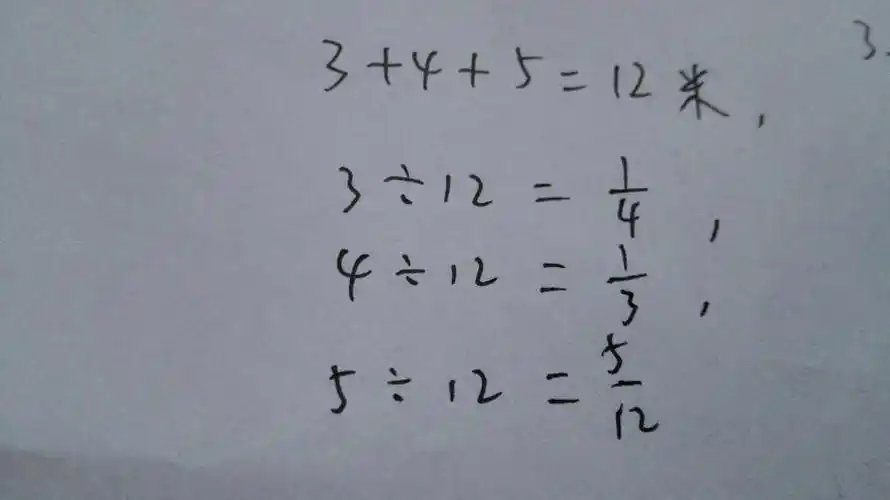 3+4+5=12米,
3÷12=1/4,
4÷12=1/3,
5÷12=5/12
3.